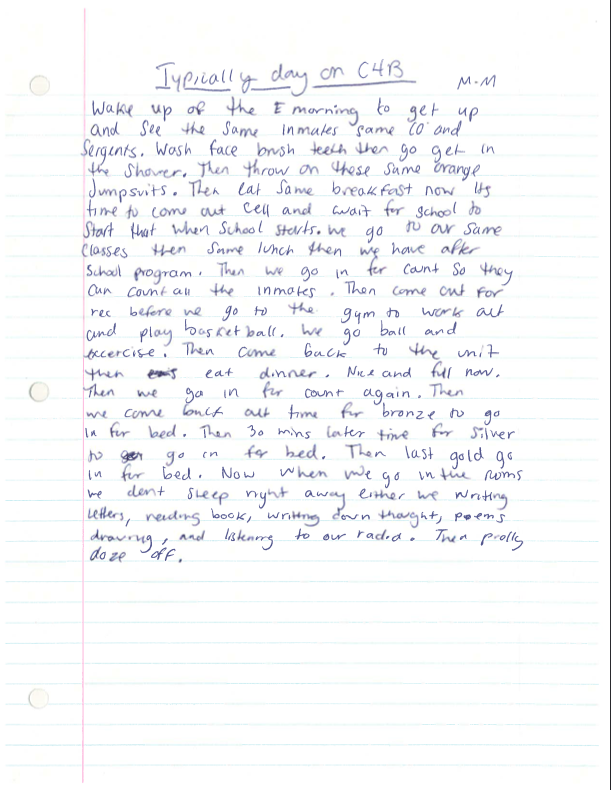 Typically day on C4B
M.M
Wake up of the E morning to get up
and see the same inmates same CO and
Sergents. Wash face brush teeth then go get in
the shower. Then throw on these same orange
Jumpsuits. Then eat same breakfast now its
time to come out cell and await for school to
Start that when school starts. We go to our same
Classes then same lunch then we have after
School program. Then we go in for count so they
can count all the inmates. Then come out for
rec before we go to the gym to work out
and play basketball. We go ball and
excercise. Then come back to the unit
then eat dinner. Nice and full now.
Then we go in for count again. Then
we come back out time for bronze to go
in for bed. Then 30 mins later time for silver
to go in for bed. Then last gold go
in for bed. Now when we go in the rooms
we dont sleep right away either we writing
letters, reading book, writing down thought, poems
drawing, and listening to our radio. Then prolly
doze off.